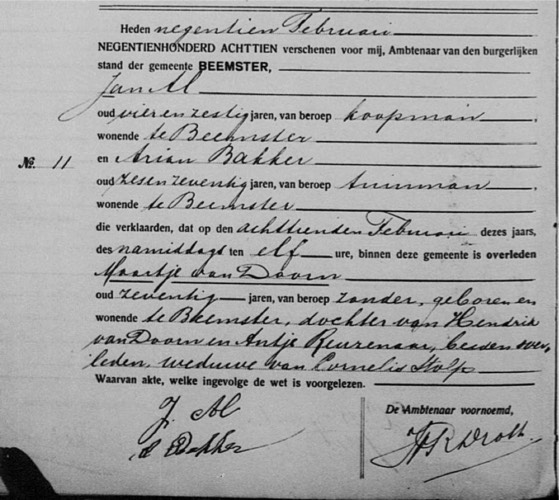 Heden negentien Februari
NEGENTIENHONDERD ACHTTIEN verschenen voor mij, Ambtenaar van den burgerlijken
stand der gemeente BEEMSTER,
Jan Al
oud vier en zestig jaren, van beroep koopman
wonende te Beemster
No. 11 en Arian Bakker
oud zes en zeventig jaren, van beroep tuinman
wonende te Beemster
die verklaarden, dat op den achttienden Februari dezes jaars,
des namiddags ten elf ure, binnen deze gemeente is overleden
Maartje van Doorn
oud zeventig jaren, van beroep zonder, geboren en
wonende te Beemster, dochter van Hendrik
van Doorn en Antje Reuzenaar, beiden over-
leden, weduwe van Cornelis Stolp
Waarvan akte, welke ingevolge de wet is voorgelezen.
J. Al
A Bakker
De Ambtenaar voornoemd,